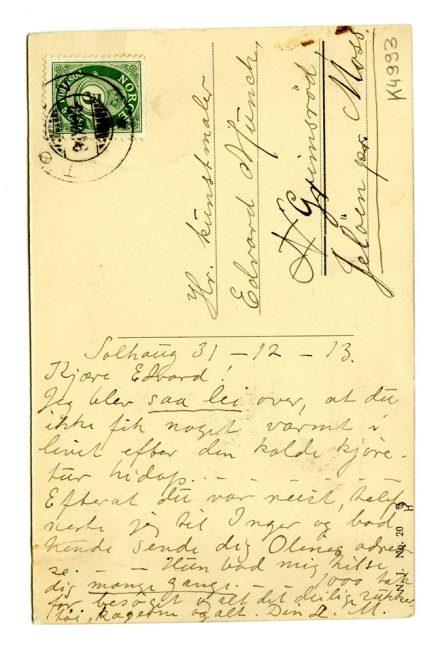 NORGE
K4993
Hr. kunstmaler
Edvard Münch,
Grimsröd,
Jelöen pr. Moss.
Solhaug 31 – 12 – 13.
Kjære Edvard!
Jeg blev saa lei over, at du
ikke fik noget varmt i
livet efter den kolde kjøre-
tur hidop. – – – – –
Efterat du var reist, telef
nerte jeg til Inger og bad
hende sende dig Olines adres-
se. – – Hun bad mig hilse
dig mange gange. – – 1000 tak
for besøget og alt det deilige sukker-
tøi, kagerne og alt. Din L. M.
N. J. No. 20